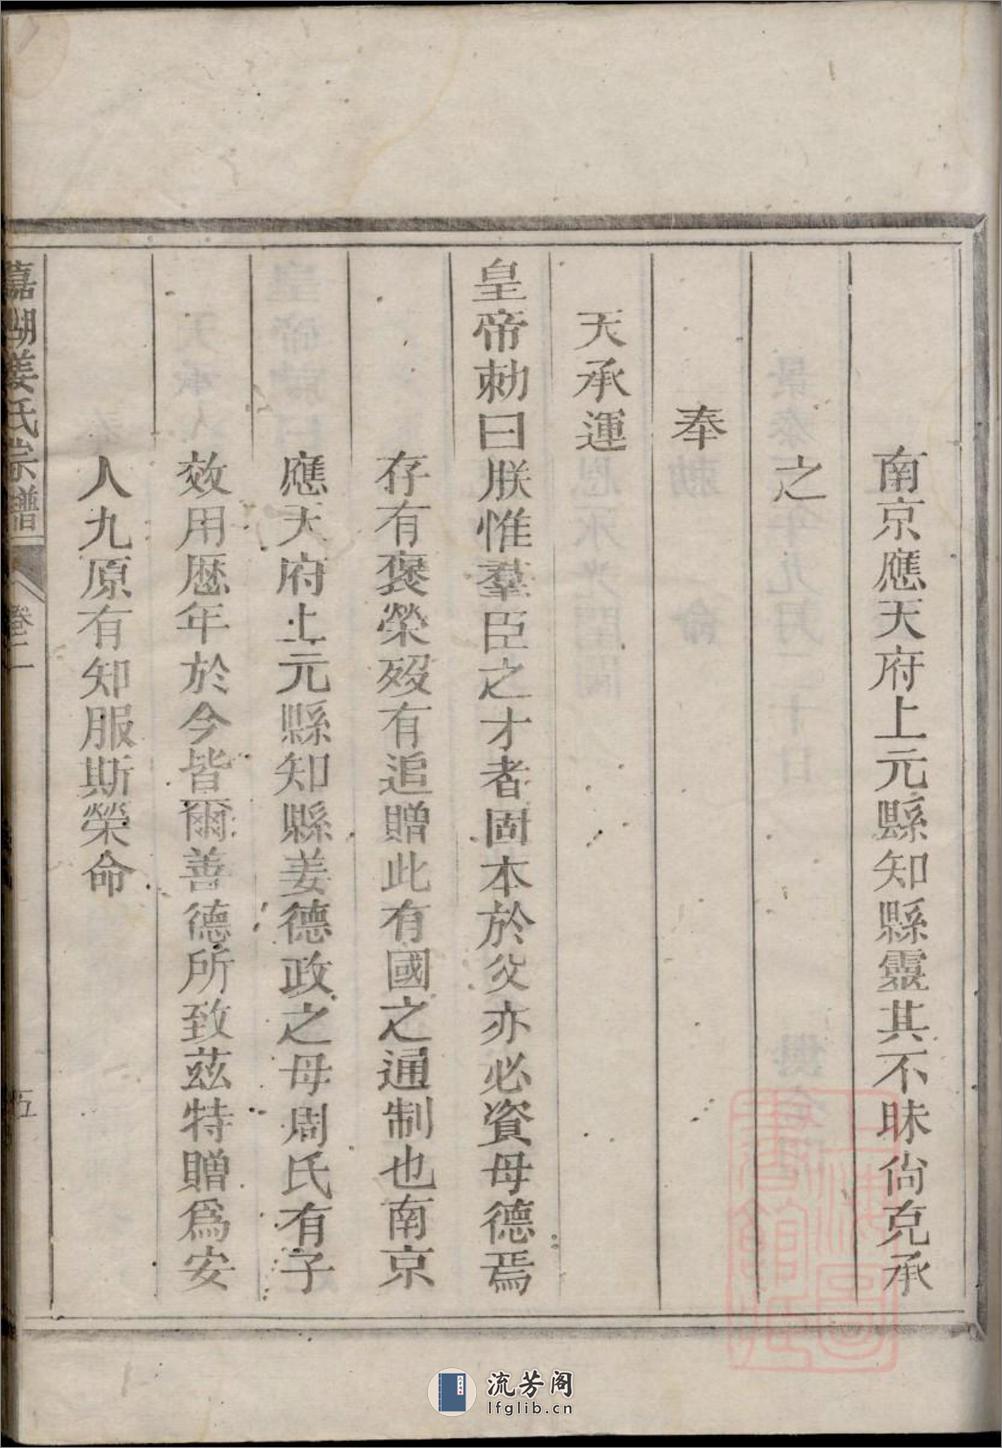 南京應天府上元縣知縣靈其不昧尙克承
之
奉
天承運
皇帝勅曰朕惟羣臣之才者固本於父亦必資母德焉
存有褒榮歿有追贈此有國之通制也南京
應天府上元縣知縣姜德政之母周氏有子
效用歷年於今皆爾善德所致茲特贈爲安
人九原有知服斯榮命
嘉湖姜氏宗譜 卷二 五
流芳阁
lfglib.cn